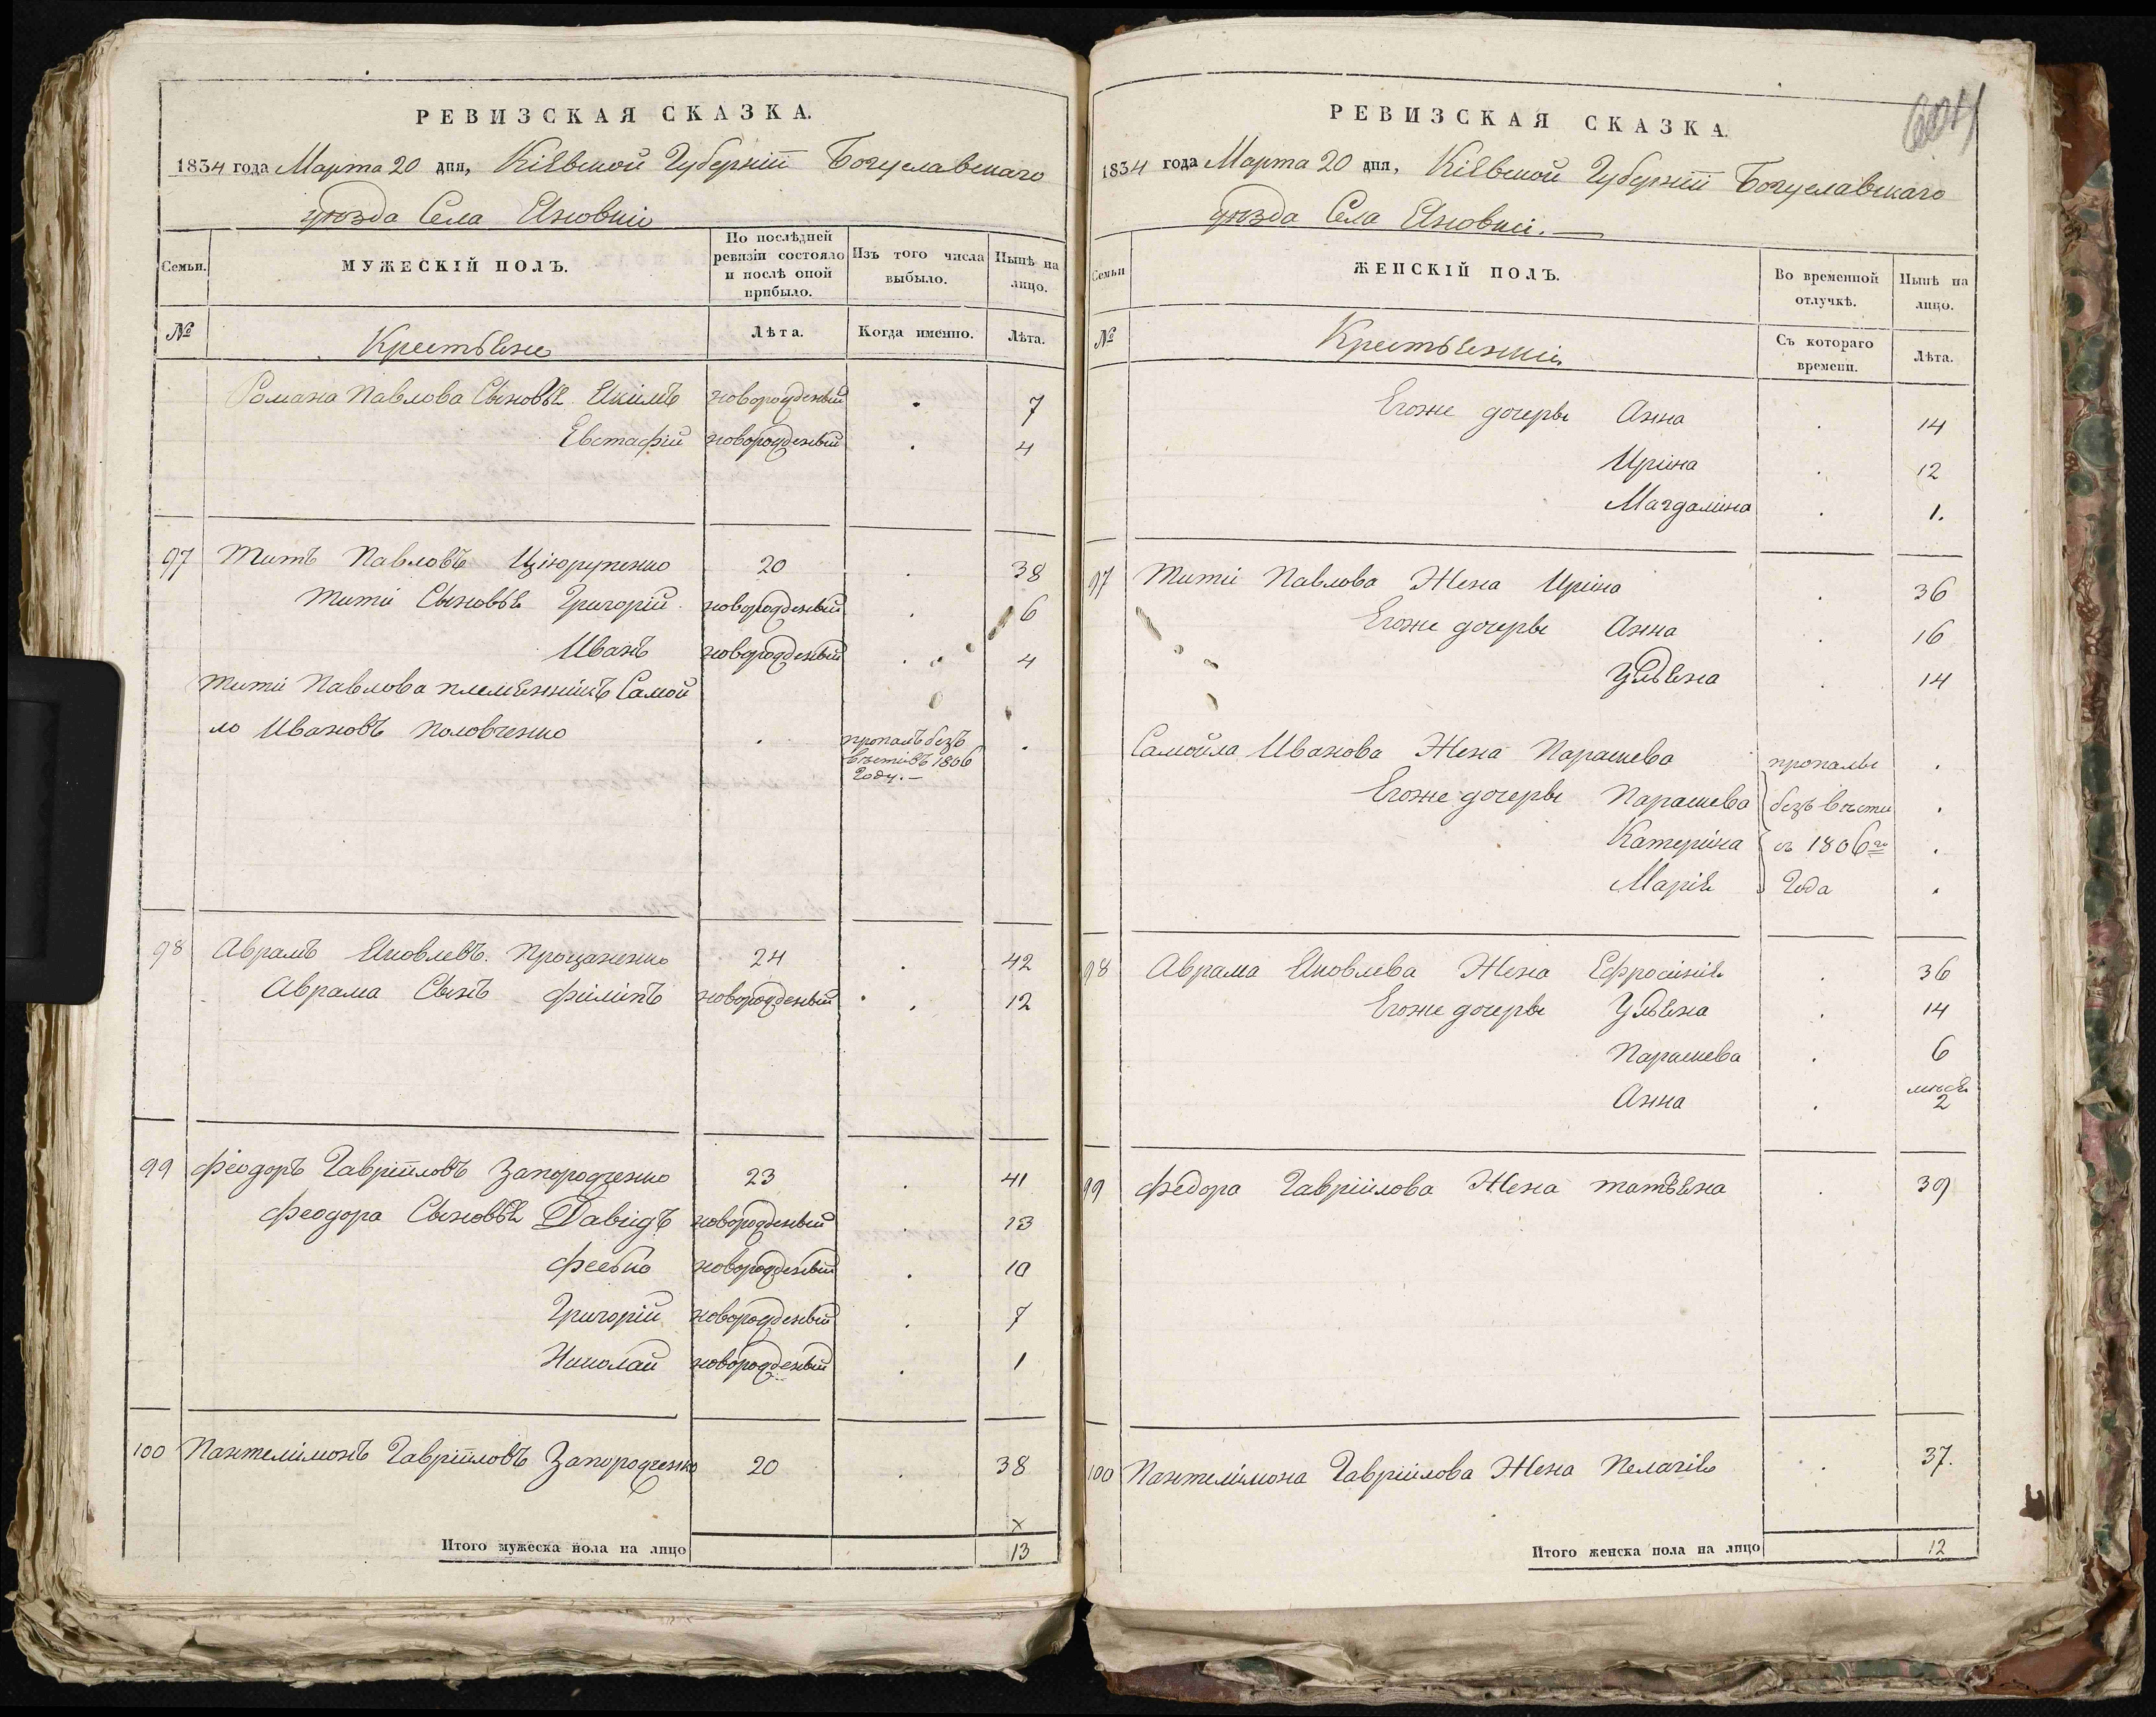 РЕВИЗСКАЯ СКАЗКА.
1834 года Марта 20 дня, Кіевской Губерніи Богуславскаго
уѣзда Села Яновки
Семьи.
МУЖЕСКІЙ ПОЛЪ.
По послѣдней ревизіи состояло и послѣ оной прибыло.
Изъ того числа выбыло.
Нынѣ на лицо.
№
Крестьяне
Лѣта.
Когда именно.
Лѣта.
Романа Павлова Сыновья Якимъ новорожденный . 7
Евстафій новорожденный . 4
97 Титъ Павловъ Цюрупенко 20 . 38
Тита Сыновья Григорій новорожденный . 6
Иванъ новорожденный . 4
Тита Павлова племянникъ Самой
ло Ивановъ Половченко . пропалъ безъ вѣсти въ 1806 Году. .
98 Аврамъ Яковлевъ Прощаненко 24 . 42
Аврама Сынъ Филипъ новорожденный . 12
99 Феодоръ Гавріиловъ Запородченко 23 . 41
Феодора Сыновья Давидъ новорожденный . 13
новорожденный . 10
Григорій новорожденный . 7
Николай новорожденный . 1
100 Пантелимонъ Гавріиловъ Запородченко 20 . 38
х
Итого мужеска пола на лицо 13
604
РЕВИЗСКАЯ СКАЗКА.
1834 года Марта 20 дня, Кіевской Губерніи Богуславскаго
уѣзда Села Яновки.
Семьи
ЖЕНСКІЙ ПОЛЪ.
Во временной отлучкѣ.
Нынѣ на лицо.
№
Крестьянки
Съ котораго времени.
Лѣта.
Егоже дочеры Анна . 14
Ирина . 12
Магдалина . 1.
97 Тита Павлова Жена Ирина . 36
Егоже дочеры Анна . 16
Ульяна . 14
Самойла Иванова Жена Параскева пропалы .
Егоже дочеры Параскева безъ вѣсти .
Катерина съ 1806го .
Марія Года .
98 Аврама Яковлева Жена Ефросинія . 36
Егоже дочеры Ульяна . 14
Параскева . 6
Анна . мися 2
99 Федора Гавріилова Жена татьяна . 39
100 Пантелимона Гавріилова Жена Пелагія . 37.
Итого женска пола на лицо 12